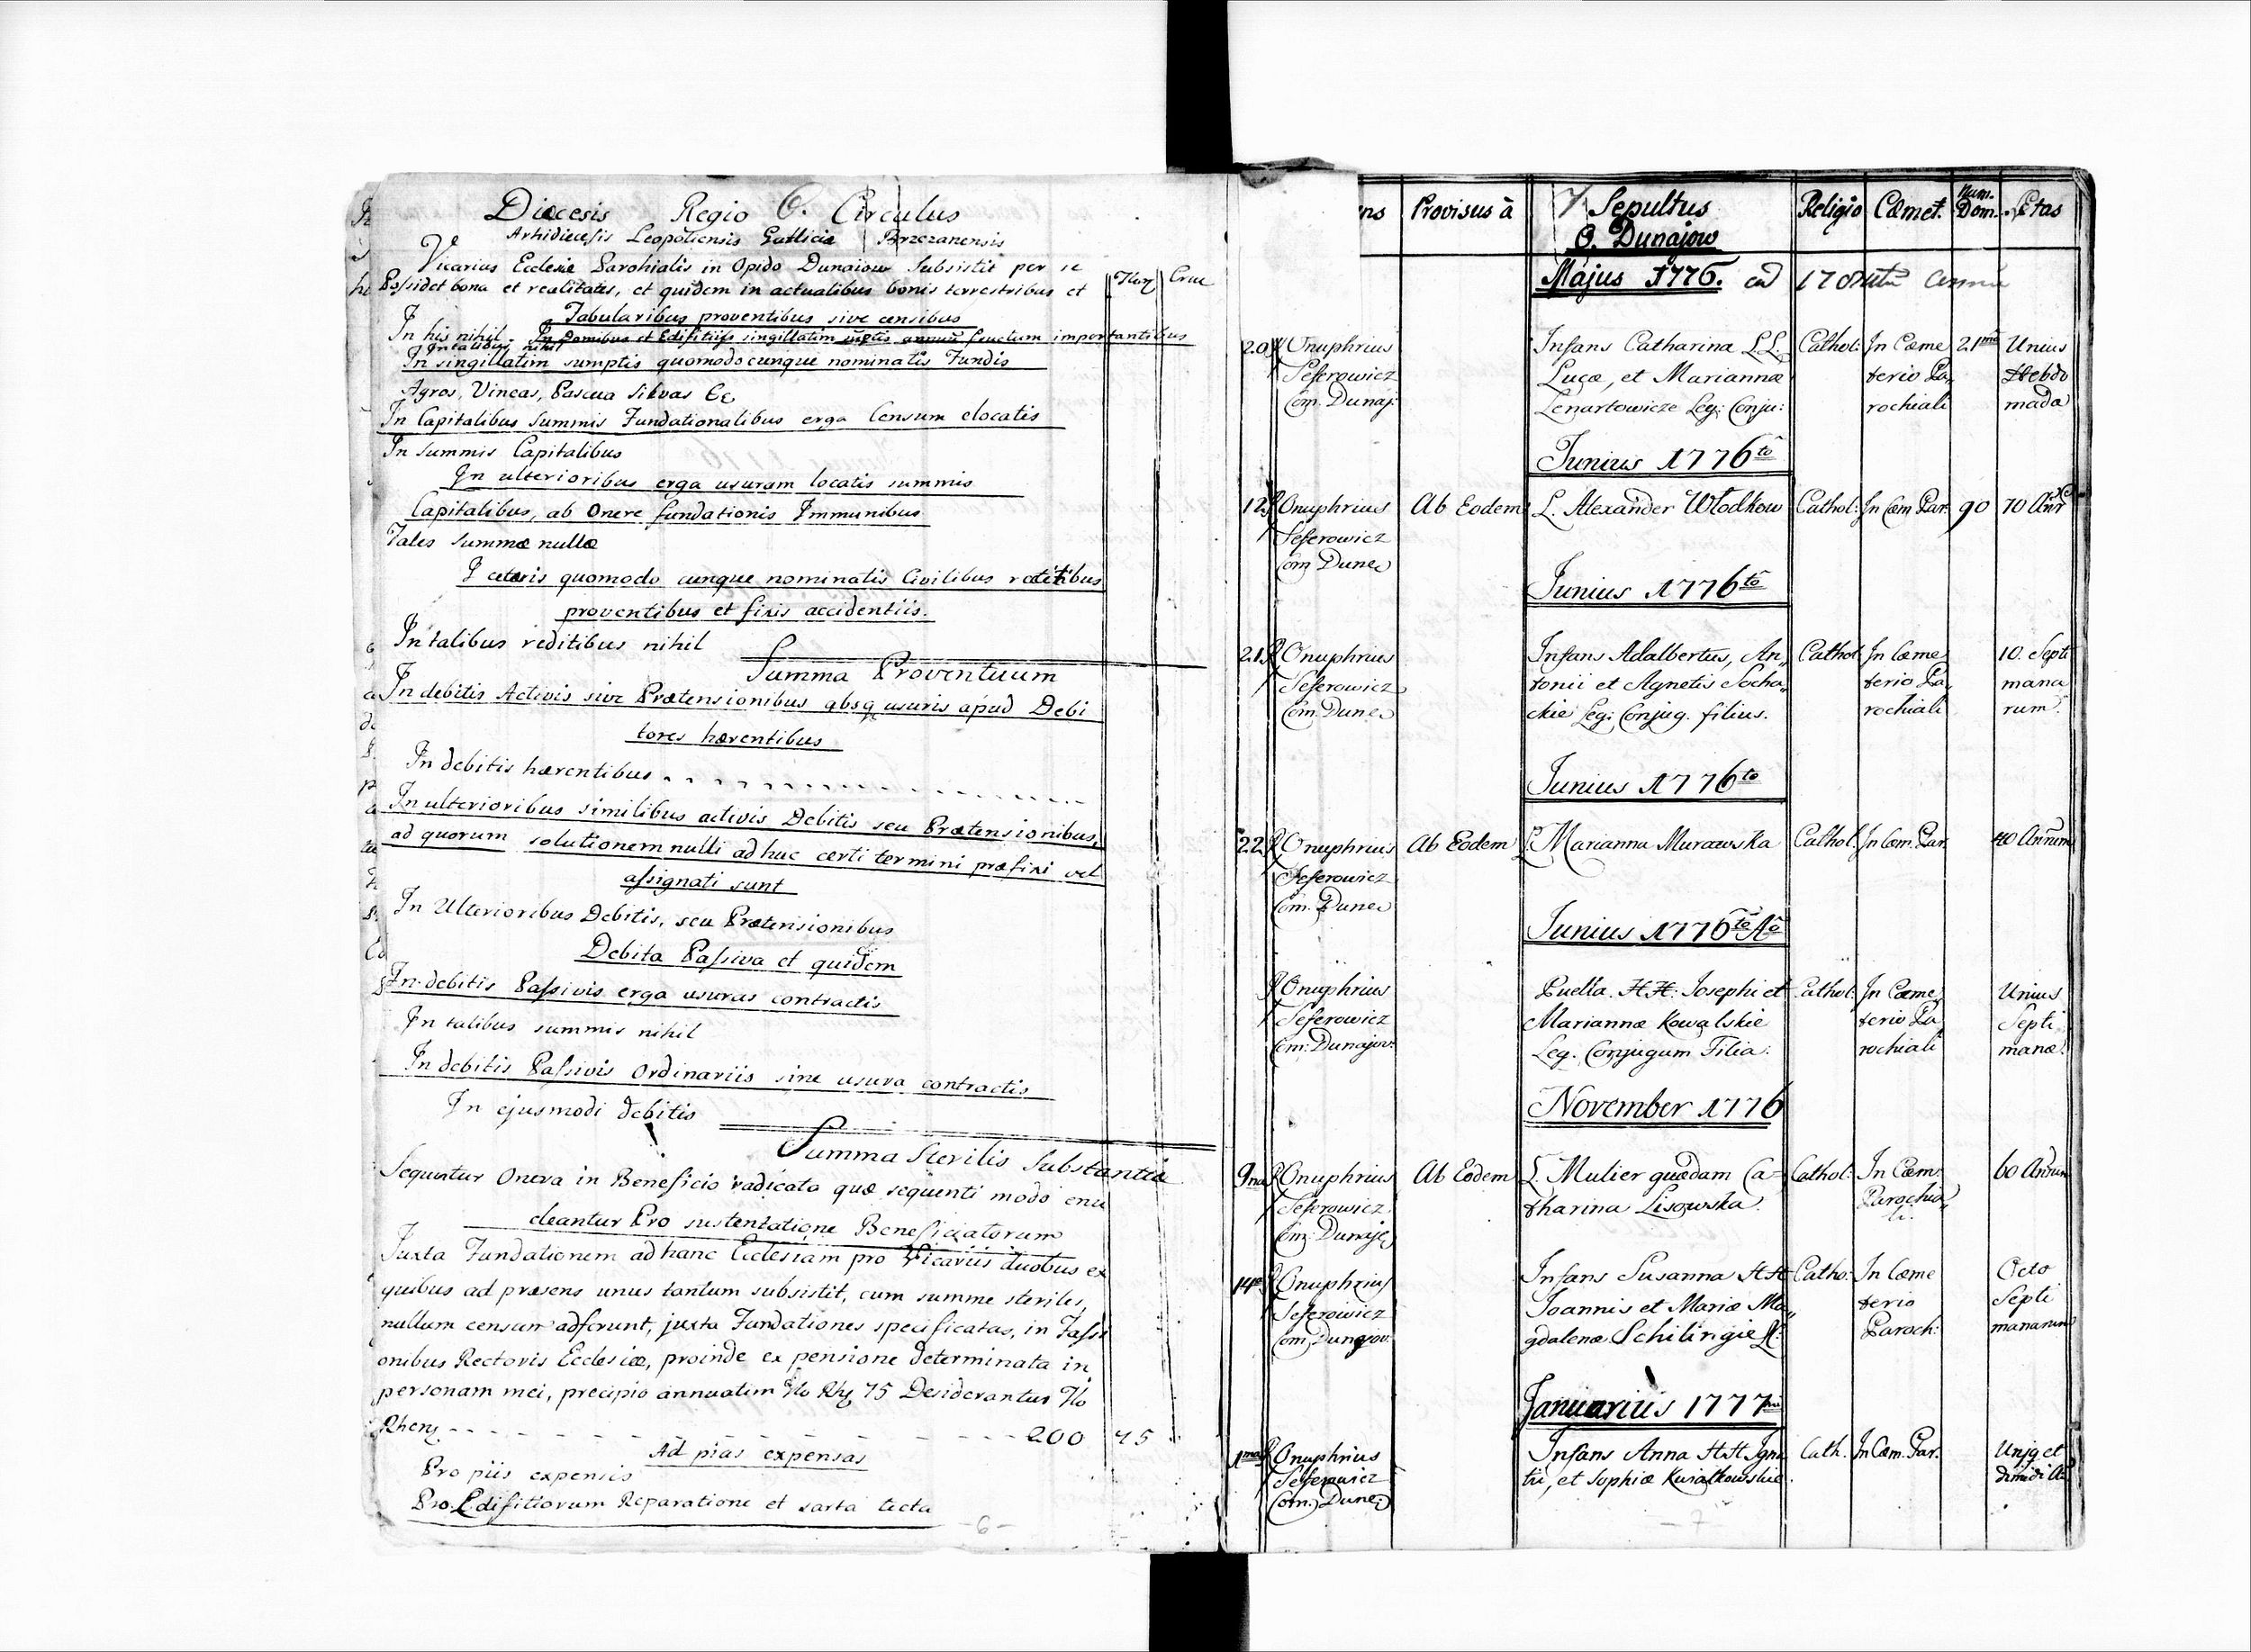 Diœcesis Regio O. Circulus
Arhidiecesis Leopoliensis Gallicia Brzezanensis
Vicarius Ecclesiæ Parohialis in Opido Dunaiow Subsistit per se
Possidet bona et realitates, et quidem in actualibus bonis terrestribus et
Flor Cruc
Tabularibus proventibus sive censibus
In his nihil In Domibus et Edifitiijs singillatim sũptis annuũ fructum importantibus
In talibus nihil
In singillatim sumptis quomodocunque nominatis Fundis
Agros, Vineas, Pascua Silvas &c
In Capitalibus Summis Fundationalibus erga Censum elocatis
In summis Capitalibus
In ulterioribus erga usuram locatis summis
Capitalibus, ab Onere fundationis Immunibus
Tales summæ nullæ
I ceteris quomodo cunque nominatis Civilibus redititibus
proventibus et fixis accidentiis.
In talibus reditibus nihil
Summa Proventuum
In debitis Activis sive Prætensionibus absq usuris apud Debi
tores hærentibus
In debitis hærentibus
In ulterioribus similibus activis Debitis seu Prætensionibus,
ad quorum solutionem nulli adhuc certi termini præfixi vel
assignati sunt
In Ulterioribus Debitis, seu Prætensionibus
Debita Passiva et quidem
In debitis Passivis erga usuras contractis
In talibus summis nihil
In debitis Passivis Ordinariis sine usura contractis
In ejusmodi debitis
Summa Sterilis Substantiæ
Sequntur Onera in Beneficio radicata quæ sequenti modo enu
cleantur Pro sustentatione Beneficiatorum
Juxta Fundationem ad hanc Ecclesiam pro Vicariis duobus ex
quibus ad præsens unus tantum subsistit, cum summe steriles,
nullum censum adferunt, juxta Fundationes specificatas, in Fassi
onibus Rectoris Ecclesiæ, proinde ex pensione determinata in
personam mei, precipio annuatim Flo Rhg 75 Desiderantur Flo
Rheng - - - - - - - - - - 200 75
Ad pias expensas
Pro piis expensis
Pro Edifitiorum Reparatione et sarta tecta
-6-
ns Provisus à 7 Sepultus Religio Cœmet. Num. Dom. Ætas
O. Dunajow
Majus 1776. ad
20 Onuphrius Infans Catharina LL. Cathol: In Cœme 21mo Unius
Seferowicz Lucæ, et Mariannæ terio Pa, Hebdo
Com. Dunaj: Lenartowicze Leg: Conju: rochiali mada
Junius 1776to
12 Onuphrius Ab Eodem L. Alexander Wlodkow Cathol: In Cœm Par. 90 70 Anr
Seferowicz
Com Dune
Junius 1776to
21 Onuphrius Infans Adalbertus, An, Cathol: In Cœme 10. Septi
Seferowicz tonii et Agnetis Socha, terio Pa, mana
Com. Dune ckie Leg: Conjug. filius. rochiali rum.
Junius 1776to
22 Onuphrius Ab Eodem L. Marianna Murawska Cathol In Cœm. Par. 40 Annum
Seferowicz
Com. Dune
Junius 1776to Ao
Onuphrius Puella HH: Josephi et Cathol: In Cœme, Unius
Seferowicz Mariannæ Kowalskie terio Pa Septi,
Com: Dunajov: Leg. Conjugum Filia. rochiali manæ.
November 1776
9na Onuphrius Ab Eodem L. Mulier quædam Ca= Cathol: In Cœm: 60 Annum
Seferowicz tharina Lisowska. Parochia,
Com: Dunaje li.
14 Onuphrius Infans Susanna HH Catho: In Cœme Octo
Seferowicz Joannis et Mariæ Ma, terio Septi
Com: Dunajov: gdalenæ Schilingie Paroch: manarum
Januarius 1777mi
1ma Onuphrius Infans Anna HH. Igna Cath. In Cœm. Par. Unig et
Seferowicz tii, et Sophiæ Kwiatkowskie. dimidi An
Com: Dune
-7-